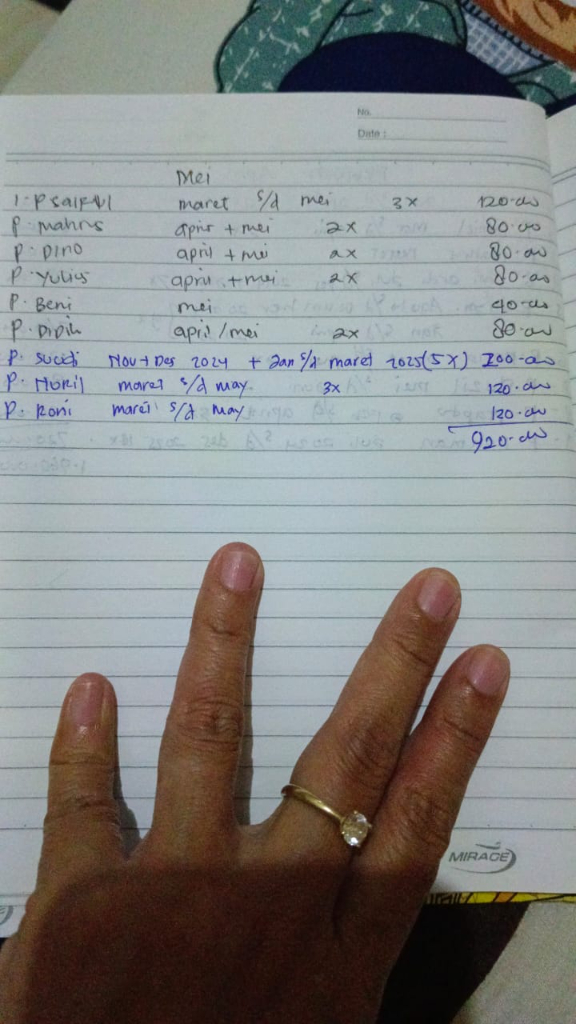 No.
Date :
Mei
1. P saipul maret s/d mei 3x 120.000
P. Mahrus april + mei 2x 80.000
P. Dino april + mei 2x 80.000
P. Yulius april + mei 2x 80.000
P. Beni mei 40.000
P. Didik april/mei 2x 80.000
P. Nov + Des 2024 + Jan s/d maret 2025 (5x) 200.000
P. maret s/d may 3x 120.000
P. Roni maret s/d may 120.000
920.000
MIRAGE